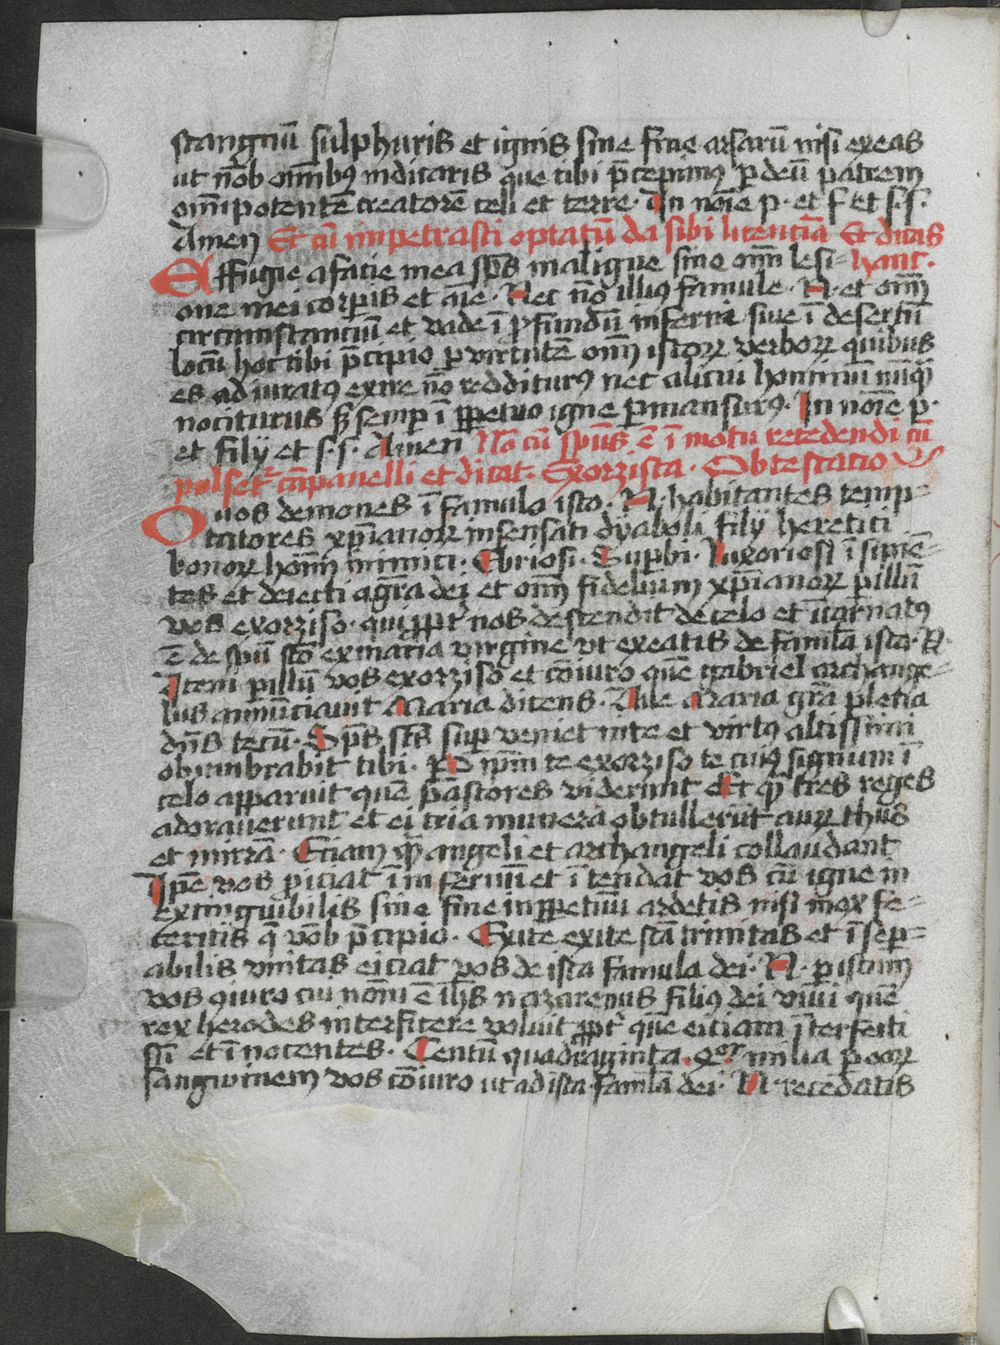 stangnū sulphuris et ignis sine fine arsarū nisi exeas
ut nob̄ om̄ibꝰ indicaris que tibi p̄cepimꝰ ꝑ deū patrem
om̄ipotentē creatorē celi et terre. In noīe p. et f. et s. s.
Amen Et cū impetrasti optatū da sibi licenciā Et dicas
Effugie a facie mea sp̄s maligne sine om̄i lesi= hanc.
one mei corꝑis et aīe. Nec nō illiꝰ famule. N. et om̄i
circumstanciū et vade ī ꝓfundū inferni siue ī desertū
locū hoc tibi p̄cipio ꝑ virtutē om̄ istoꝝ verboꝝ quibus
es adiuratꝰ exire nō redditurꝰ nec alicui hominū nūq̄
nociturus sꝫ semꝑ ī ꝑpetuo igne ꝑmansurꝰ. In noīe p.
et filij et s. s. Amen Nō cū spūs ē ī motu recedendi cū
pulset᷑ cāpanelli et dicat. Exorzista. Obtestatio
O uos demones ī famula ista. N. habitantes temp=
tatores xp̄ianoꝝ insensati dyaboli filij heretici
bonoꝝ hom̄ inimici. Ebriosi. Superbi. luxoriosi ī sipiē=
tes et deiecti a gr̄a dei et om̄ fidelium xp̄ianoꝝ ꝑ illū
vos exorziso. qui ꝓpt̓ nos descendit de celo et īcarnatꝰ
ē de spū sc̄o ex maria virgine ut exeatis de famula ista. N.
Item ꝑ illū vos exorziso et cōiuro quē gabriel archange=
lus annunciauit Maria dicens. Aue Maria gr̄a plena
dn̄s tecū. Sp̄s sc̄s suꝑ veniet in te et virtꝰ altissimi
obumbrabit tibi. ꝑ ip̄m te exorziso te cuiꝰ signum ī
celo apparuit quē pastores viderunt et q̄ tres reges
adorauerunt et ei tria munera obtullerūt auꝝ thus
et mirrā. Eciam q̄ angeli et archangeli collaudant
Ip̄e vos ꝓiciat ī infernū et ītendat vos cū igne in
extinguibilis sine fine in ꝑpetuū ardetis nisi mox fe=
ceritis q̄ vob̄ p̄cipio. Exite exite sc̄a trinitas et ī sep=
abilis vnitas eiciat vos de ista famula dei. N. ꝑ istum
vos ꝯiuro cui nomē ē ih̄s nazarenus filiꝰ dei viui quē
rex herodes interficere voluit ꝓpt̓ quē eciam īterfecti
sūt et ī nocentes. Centū quadraginta. Qr̄ milia ꝑ eoꝝ
sangwinem vos cōiuro ut ad ista famula dei. N. recedatis